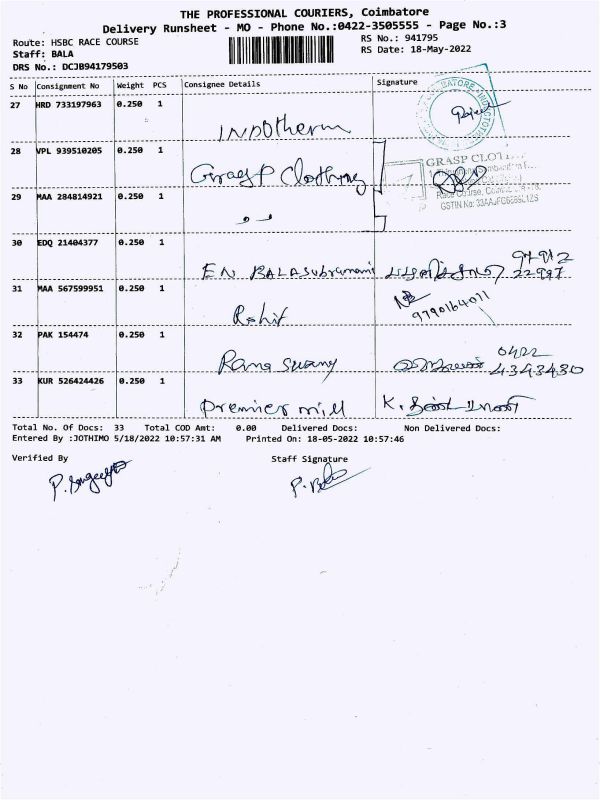 THE PROFESSIONAL COURIERS, Coimbatore
Delivery Runsheet - MO - Phone No.:0422-3505555 - Page No.:3
Route: HSBC RACE COURSE
RS No.: 941795
Staff: BALA
RS Date: 18-May-2022
DRS No.: DCJB94179503
S No Consignment No Weight PCS Consignee Details Signature
27 HRD 733197963 0.250 1
INDOtherm
28 VPL 939510205 0.250 1
GrasP Clothing
GRASP CLOT
29 MAA 284814921 0.250 1
30 EDQ 21404377 0.250 1
EN BALASubramani
31 MAA 567599951 0.250 1
Rohit 9790164011
32 PAK 154474 0.250 1
Rama Swamy 0422
4343430
33 KUR 526424426 0.250 1
Premier mill
Total No. Of Docs: 33 Total COD Amt: 0.00 Delivered Docs: Non Delivered Docs:
Entered By :JOTHIMO 5/18/2022 10:57:31 AM Printed On: 18-05-2022 10:57:46
Verified By Staff Signature